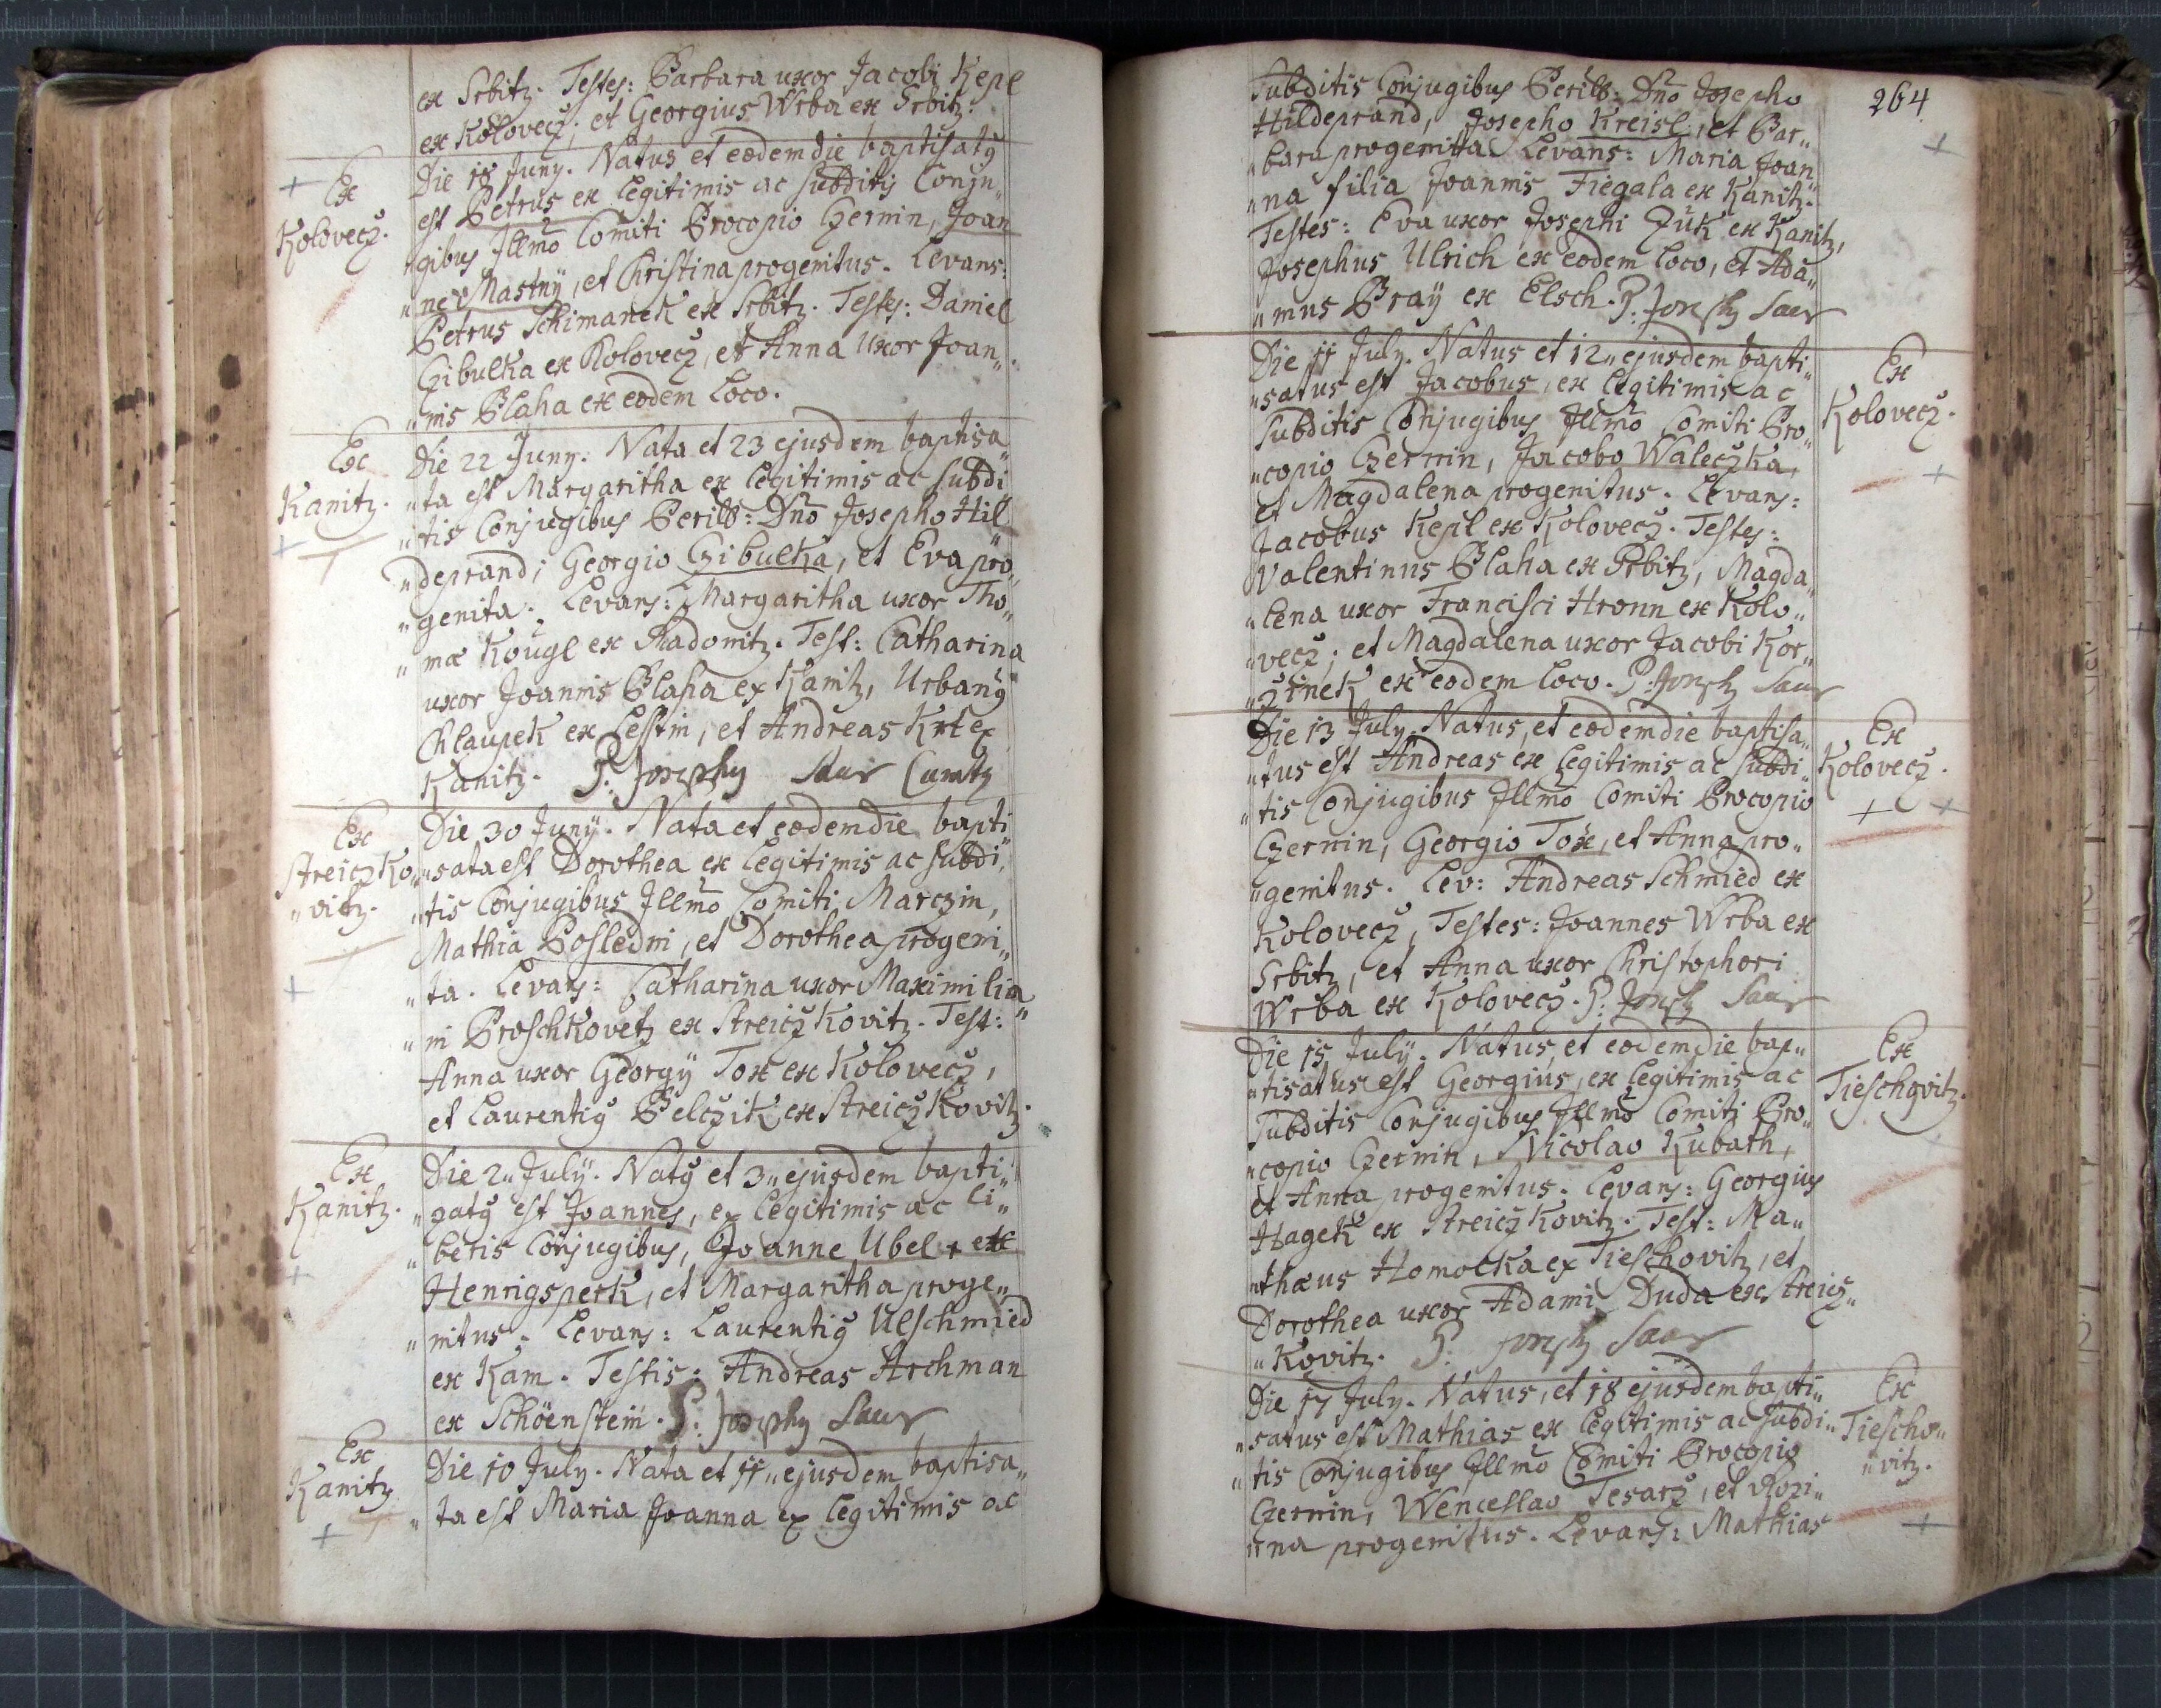 ex Srbitz. Testes: Barbara uxor Jacobi Kepl
ex Kolovecz; et Georgius Wrba ex Srbitz.
Ex
Kolovecz.
Die 18 Juny. Natus et eodem die baptisatꝰ
est Petrus ex legitimis ac subditis Conju„
„gibus Illmo Comiti Procopio Czernin, Joan
„ne Mastny, et Christina progenitus. Levans:
Petrus Schimanek ex Srbitz. Testes: Daniel
Czibulka ex Kolovecz, et Anna uxor Joan„
„nis Blaha ex eodem loco.
Ex
Kanitz.
Die 22 Juny. Nata et 23 ejusdem baptisa„
„ta est Margaritha ex legitimis ac subdi
„tis Conjugibus Perill: Dno Josepho Hil„
„deprand; Georgio Czibulka, et Eva pro„
„genita. Levans: Margaritha uxor Tho„
„mæ Kougl ex Radonitz. Test: Catharina
uxor Joannis Blaha ex Kanitz, Urbanꝰ
Chlaupek ex Lestin, et Andreas Krt ex
Kanitz. P: Josephus Saur
Ex
Streiczko„
„vitz.
Die 30 Juny. Nata et eodem die bapti„
„sata est Dorothea ex legitimis ac subdi„
„tis Conjugibus Illmo Comiti Marczin,
Mathia Posledni, et Dorothea progeni„
„ta. Levans: Catharina uxor Maximilia„
„ni Proschkovetz ex Streiczkovitz. Test:
Anna uxor Georgy Tox ex Kolovecz,
et Laurentiꝰ Belczik ex Streiczkovitz.
Ex
Kanitz.
Die 2„ July. Natꝰ et 3„ ejusdem bapti„
„zatꝰ est Joannes, ex legitimis ac li„
„beris Conjugibus, Joanne Ubel + ex
Henrigsperk, et Margaritha proge„
„nitus. Levans: Laurentiꝰ Ulschmied
ex Kam. Testis: Andreas Archman
ex Schöenstein. P: Josephus Saur
Ex
Kanitz
Die 10 July. Nata et 11„ ejusdem baptisa„
„ta est Maria Joanna ex legitimis ac
264
Subditis Conjugibus Perill: Dno Josepho
Hildeprand, Josepho Kreisl, et Bar„
„bara progenitta. Levans: Maria Joan„
„na filia Joannis Fiegala ex Kanitz.
Testes: Eva uxor Josephi Zuk ex Kanitz,
Josephus Ulrich ex eodem loco, et Ada„
„mus Bray ex Elsch. P: Joseph Saur
Ex
Kolovecz.
Die 11 July. Natus et 12„ ejusdem bapti„
„satus est Jacobus, ex legitimis ac
Subditis Conjugibus Illmo Comiti Pro„
„copio Czernin, Jacobo Waleczka,
et Magdalena progenitus. Levans:
Jacobus Kepl ex Kolovecz. Testes:
Valentinus Blaha ex Srbitz, Magda„
„lena uxor Francisci Hronn ex Kolo„
„vecz; et Magdalena uxor Jacobi Kor„
„zinek ex eodem loco. P: Joseph Saur
Ex
Kolovecz.
Die 13 July. Natus, et eodem die baptisa„
„tus est Andreas ex legitimis ac subdi„
„tis Conjugibus Illmo Comiti Procopio
Czernin, Georgio Tox, et Anna pro„
„genitus. Lev: Andreas Schmied ex
Kolovecz, Testes: Joannes Wrba ex
Srbitz, et Anna uxor Christophori
Wrba ex Kolovecz. P: Joseph Saur
Ex
Tieschovitz.
Die 15 July. Natus, et eodem die bap„
„tisatus est Georgius, ex legitimis ac
Subditis Conjugibus Illmo Comiti Pro„
„copio Czernin, Nicolao Kubath,
et Anna progenitus. Levans: Georgius
Hagek ex Streiczkovitz. Test: Ma„
„thæus Homolka ex Tieschovitz, et
Dorothea uxor Adami Duda ex Streicz„
„kovitz. P: Joseph Saur
Ex
Tiescho„
„vitz.
Die 17 July. Natus, et 18 ejusdem bapti„
„satus est Mathias ex legitimis ac subdi„
„tis Conjugibus Illmo Comiti Procopio
Czernin, Wenceslao Tesarz, et Rozi„
„na progenitus. Levans: Mathias